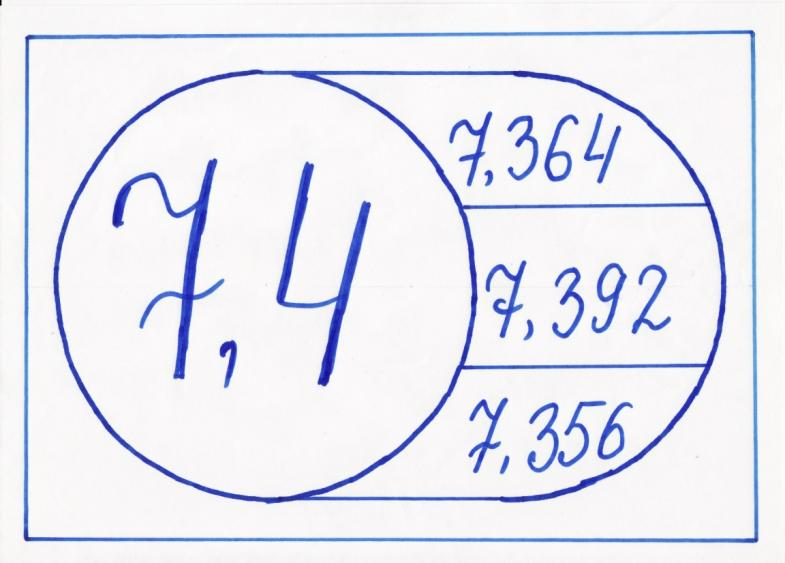 7,4
7,364
7,392
7,356